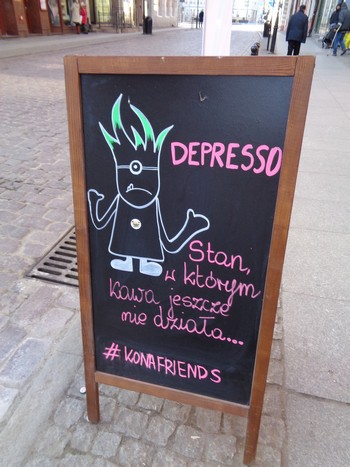 DEPRESSO
Stan,
w którym
kawa jeszcze
nie działa...
#KONAFRIENDS